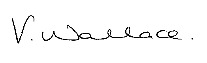 V. Wallace.